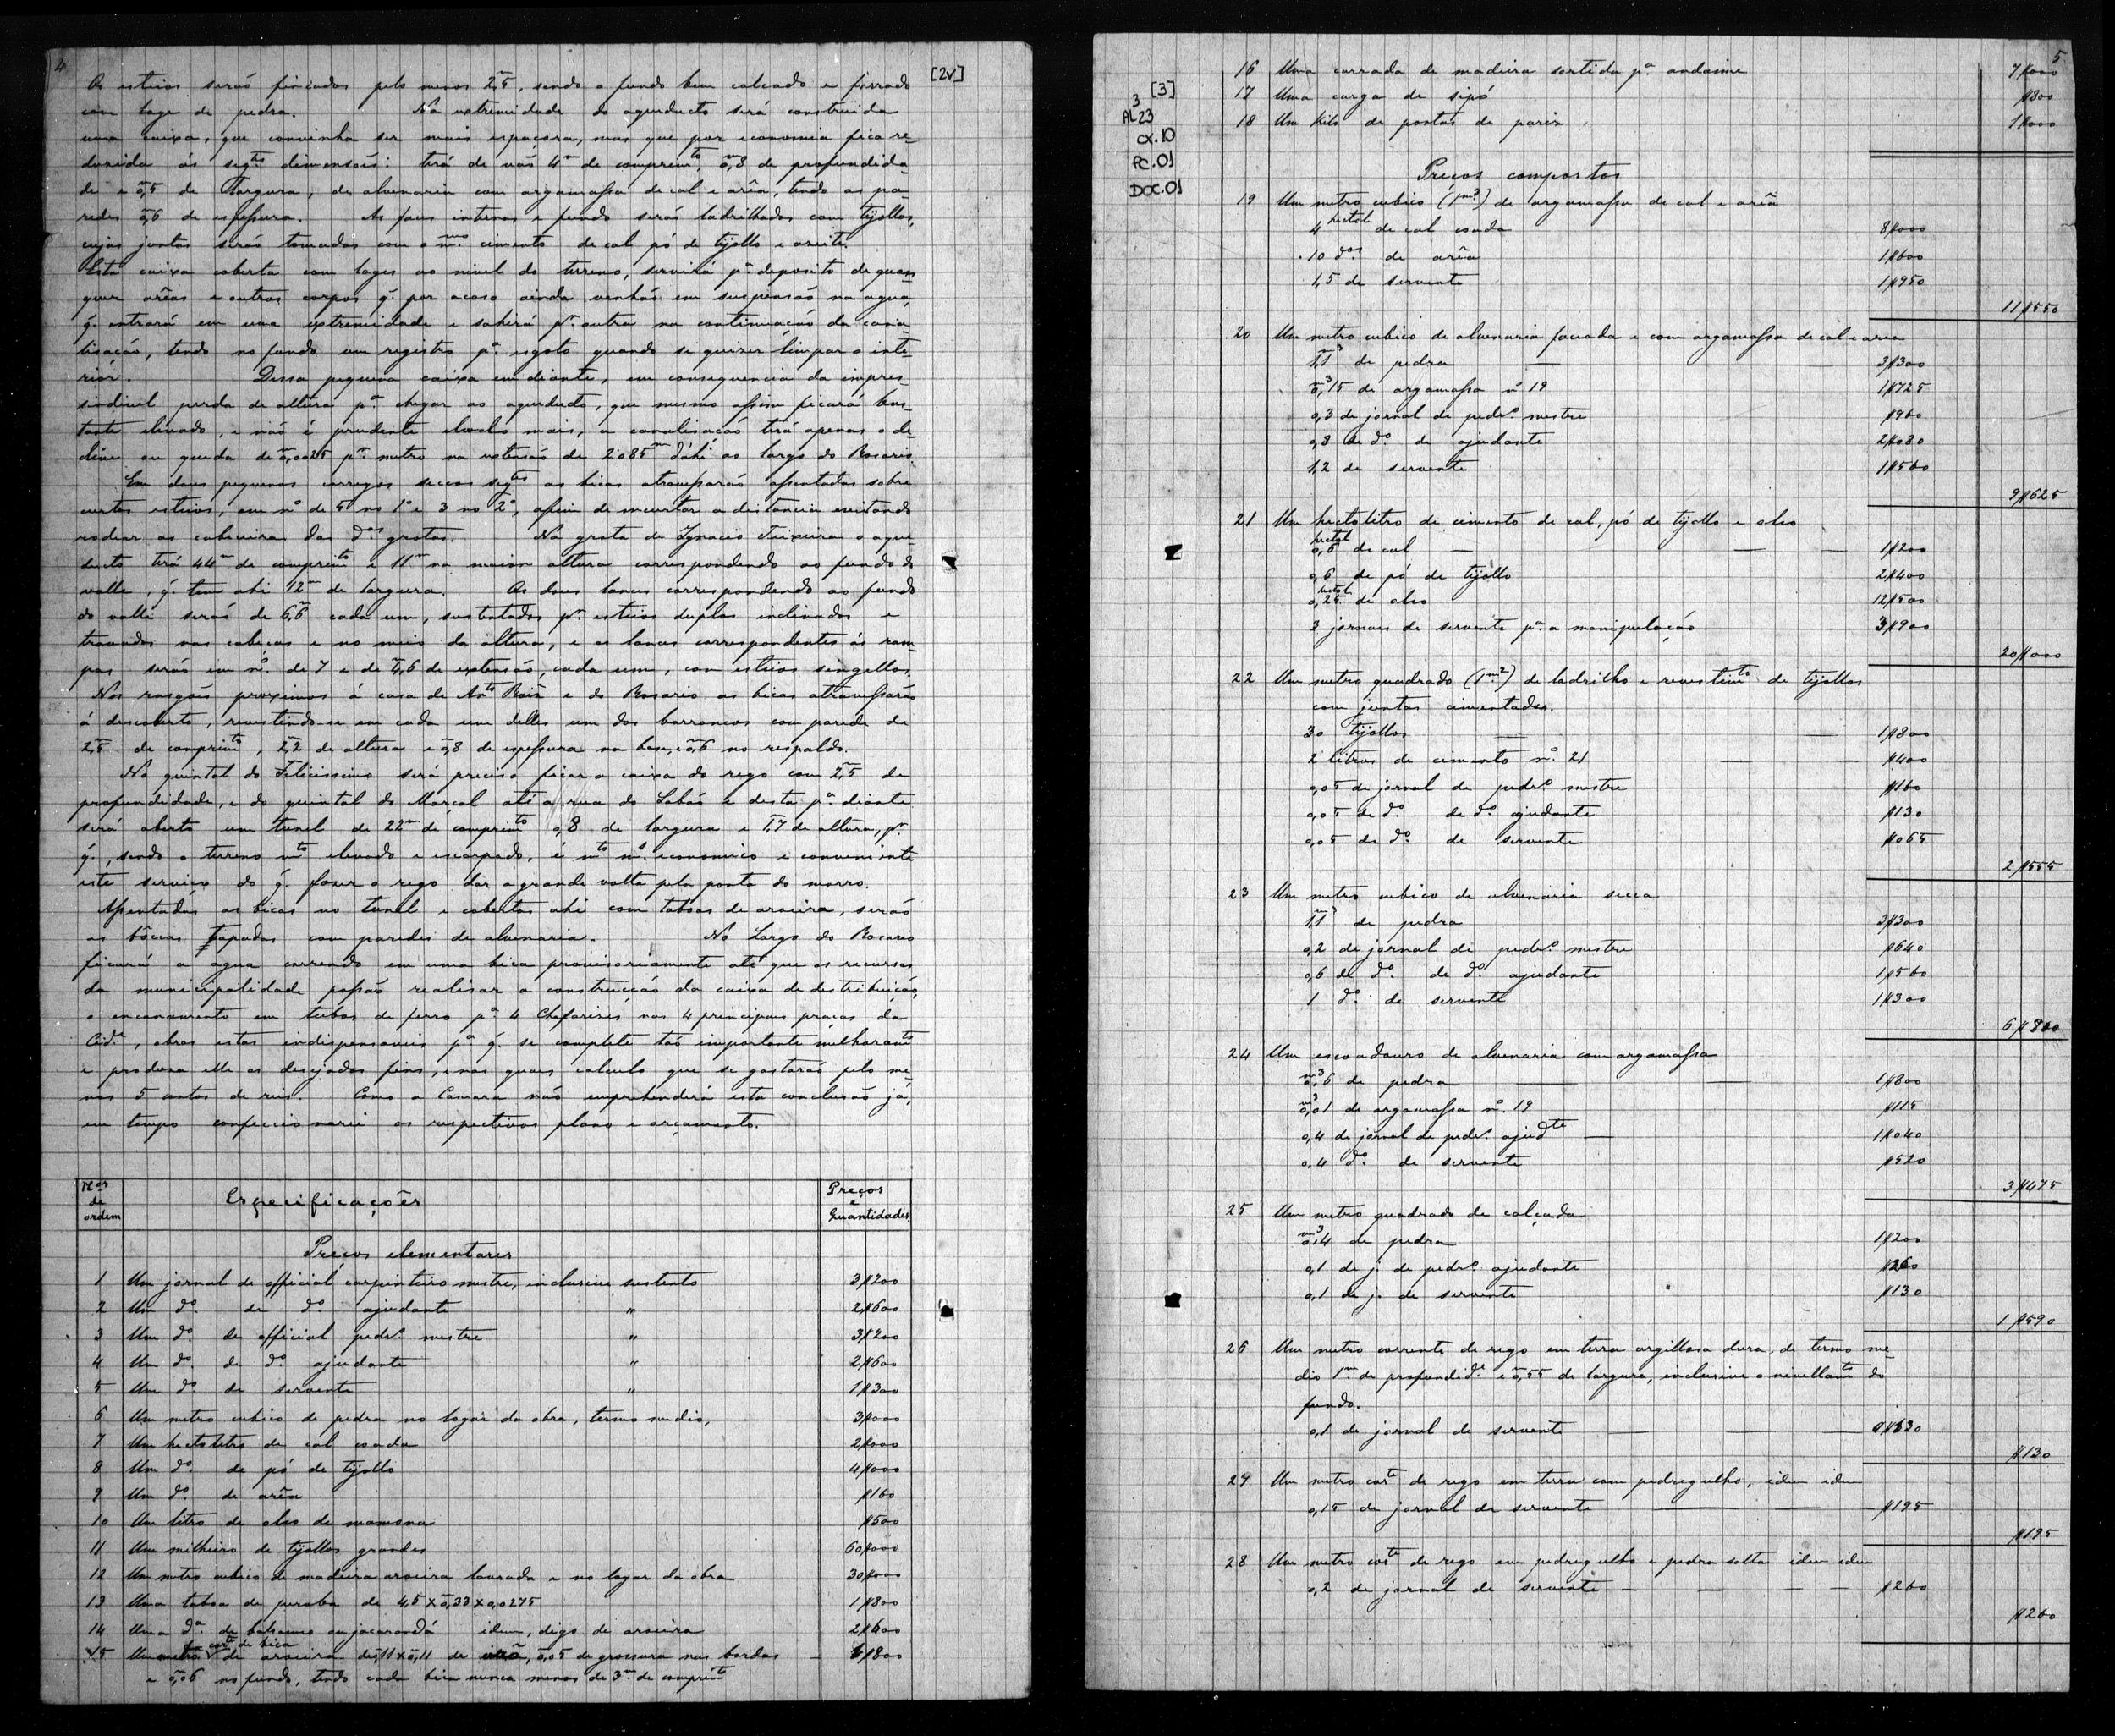 4
[2v]
Os esteios serão fincados pelo menos 2,m5, sendo o fundo bem calcado e forrado
com lage de pedra. Na extremidade do aqueducto será construida
uma caixa, que convinha ser mais espaçosa, mas que por economia fica re-
duzida ás segtes dimensões: terá de vão 4m de comprimto, 0,m8 de profundida-
de e 0,m5 de largura, de alvenaria com argamassa de cal e arêa, tendo as pa-
redes 0,m6 de espessura. As faces internas e fundo serão ladrilhados com tijollos,
cujas juntas serão tomadas com o mmo cimento de cal pó de tijollo e azeite.
Esta caixa coberta com lages ao nivel do terreno, servirá pa deposito de quaes
quer arêas e outros corpos q. por acaso ainda venhão em suspensão na agua,
q. entrará em uma extremidade e sahirá pr outra na continuação da cana-
lisação, tendo no fundo um registro pa esgoto quando se quizer limpar o inte-
rior. Dessa pequena caixa em diante, em consequencia da impres-
sindivel perda de altura pa chegar ao aqueducto, que mesmo assim ficará bas-
tante elevado, e não é prudente eleval-o mais, a canalisação terá apenas o de-
clive ou queda de 0,m0025 pr metro na extensão de 2085m d'ahi ao largo do Rosario
Em dous pequenos corregos seccos segtes as bicas atravessarão assentadas sobre
curtos esteios, em no de 5 no 1o e 3 no 2o, afim de encurtar a distancia evitando
rodear as cabeceiras das das grotas. Na grota de Ignacio Teixeira o aque-
ducto terá 44m de comprimto e 11m na maior altura correspondendo ao fundo do
valle, q. tem ahi 12m de largura. Os dous lances correspondendo ao fundo
do valle serão de 6,m6 cada um, sustentados pr esteios duplos inclinados e
travados nas cabeças e no meio da altura, e os lances correspondentes ás ram-
pas serão em no de 7 e de 4,m6 de extensão, cada um, com esteios singellos.
Nos rasgões proximos á casa de Anto Roiz e do Rosario as bicas atravessarão
á descoberto, revestindo-se em cada um delles um dos barrancos com parede de
2,m5 de comprimto, 2,m2 de altura e 0,m8 de espessura na base, e 0,m6 no respaldo.
No quintal do Felicissimo será preciso ficar a caixa do rego com 2,m5 de
profundidade, e do quintal do Marçal até a rua do Sabão e desta pa diante
será aberto um tunel de 22m de comprimto 0,8 de largura e 1,m7 de altura, pr
q., sendo o terreno mto elevado e escarpado, é mto ms economico e conveniente
este serviço do q. fazer o rego dar a grande volta pela ponta do morro.
Assentadas as bicas no tunel e cobertas ahi com taboas de aroeira, serão
as bôccas tapadas com paredes de alvenaria. No Largo do Rosario
ficará a agua correndo em uma bica provisoriamente até que os recursos
da municipalidade possão realisar a construcção da caixa de destribuição,
o encanamento em tubos de ferro pa 4 Chafarizes nas 4 principaes praças da
Cide, obras estas indispensaveis pa q. se complete tão importante melhoramto
e produza elle os desejados fins, e nas quaes calculo que se gastarão pelo me-
nos 5 contos de reis. Como a Camara não emprehenderá esta conclusão já,
em tempo confeccionarei os respectivos plano e orçamento.
Nos de ordem Especificações Preços e Quantidades
Preços elementares
1 Um jornal de official carpinteiro mestre, inclusive sustento 3$200
2 Um do de do ajudante " 2$600
3 Um do de official pedro mestre " 3$200
4 Um do de do ajudante " 2$600
5 Um do de servente " 1$300
6 Um metro cubico de pedra no logar da obra, termo medio, 3$000
7 Um hectolitro de cal coada 2$000
8 Um do de pó de tijollo 4$000
9 Um do de arêa $160
10 Um litro de oleo de mamona $500
11 Um milheiro de tijollos grandes 60$000
12 Um metro cubico de madeira aroeira lavrada e no logar da obra 30$000
13 Uma taboa de peroba de 4,5 x 0,m33 x 0,0275 1$800
14 Uma da de balsamo ou jacarandá idem, digo de aroeira 2$600
15 Um metro corte de bica de aroeira de 0,11 x 0,m11 de vão, 0,m05 de grossura nas bordas 1$800
e 0,m06 no fundo, tendo cada bica nunca menos de 3m de comprimto
5
[3]
3
AL23
CX.10
PC.01
DOC.01
16 Uma carrada de madeira sortida pa andaime 7$000
17 Uma carga de sipó $800
18 Um kilo de pontas de pariz 1$000
Preços compostos
19 Um metro cubico (1m3) de argamassa de cal e arêa
4 hectol de cal coada 8$000
10 dos de arêa 1$600
1,5 de servente 1$950
11$550
20 Um metro cubico de alvenaria faceada e com argamassa de cal e area
1,m31 de pedra 3$300
0,m315 de argamassa no 19 1$725
0,3 de jornal de pedro mestre $960
0,8 de do de ajudante 2$080
1,2 de servente 1$560
9$625
21 Um hectolitro de cimento de cal, pó de tijollo e oleo
0,6 hectol de cal 1$200
0,6 de pó de tijollo 2$400
0,25 hectol de oleo 12$500
3 jornaes de servente pa a manipulação 3$900
20$000
22 Um metro quadrado (1m2) de ladrilho e revestimto de tijollos
com juntas cimentadas.
30 tijollos 1$800
2 litros de cimento no 21 $400
0,05 de jornal de pedro mestre $160
0,05 de do de do ajudante $130
0,05 de do de servente $065
2$555
23 Um metro cubico de alvenaria secca
1,m31 de pedra 3$300
0,2 de jornal de pedro mestre $640
0,6 de do de do ajudante 1$560
1 do de servente 1$300
6$800
24 Um escoadouro de alvenaria com argamassa
0,m36 de pedra 1$800
0,m301 de argamassa no 19 $115
0,4 de jornal de pedro ajudte 1$040
0,4 do de servente $520
3$475
25 Um metro quadrado de calçada
0,m34 de pedra 1$200
0,1 de j. de pedro ajudante $260
0,1 de j. de servente $130
1$590
26 Um metro corrente de rego em terra argillosa dura, de termo me-
dio 1m de profundide e 0,m55 de largura, inclusive o nivellamto do
fundo.
0,1 de jornal de servente $130
$130
27 Um metro corte de rego em terra com pedregulho, idem idem
0,15 de jornal de servente $195
$195
28 Um metro corte de rego em pedregulho e pedra solta idem idem
0,2 de jornal de servente $260
$260